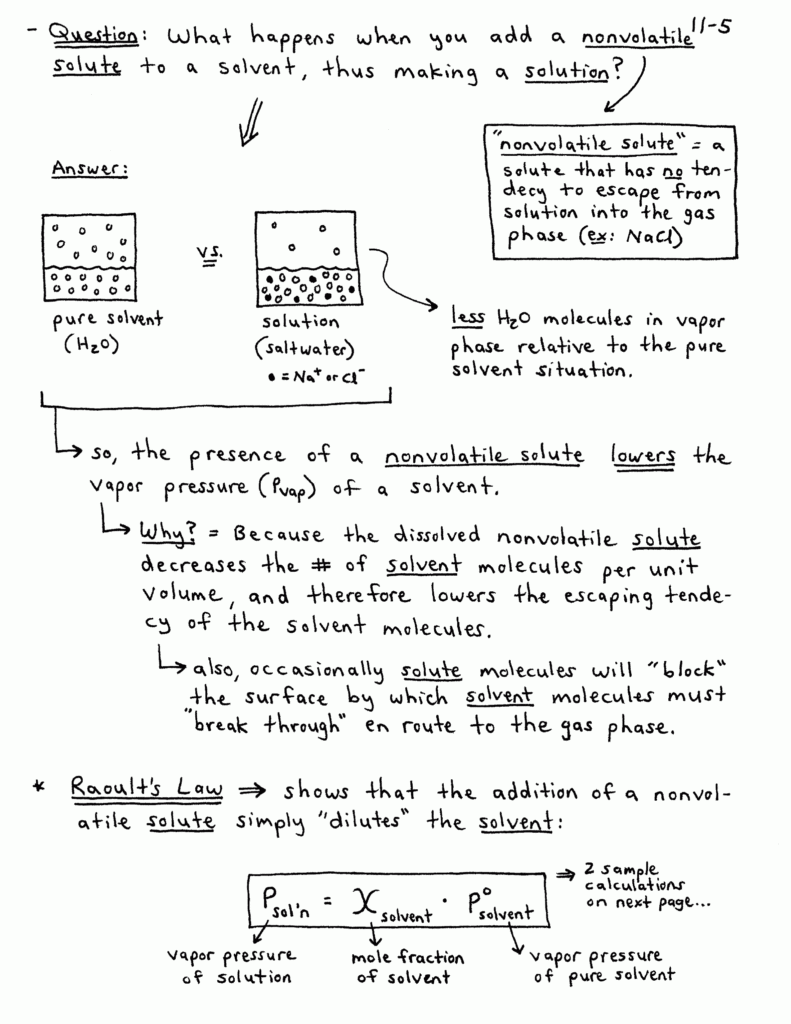 11-5
- Question: What happens when you add a nonvolatile
solute to a solvent, thus making a solution?
"nonvolatile solute" = a
solute that has no ten-
decy to escape from
solution into the gas
phase (ex: NaCl)
Answer:
vs.
pure solvent
(H₂O)
solution
(saltwater)
• = Na⁺ or Cl⁻
less H₂O molecules in vapor
phase relative to the pure
solvent situation.
so, the presence of a nonvolatile solute lowers the
vapor pressure (Pvap) of a solvent.
Why? = Because the dissolved nonvolatile solute
decreases the # of solvent molecules per unit
volume, and therefore lowers the escaping tende-
cy of the solvent molecules.
also, occasionally solute molecules will "block"
the surface by which solvent molecules must
"break through" en route to the gas phase.
* Raoult's Law ⇒ shows that the addition of a nonvol-
atile solute simply "dilutes" the solvent:
P sol'n = X solvent · P° solvent
⇒ 2 sample
calculations
on next page...
vapor pressure
of solution
mole fraction
of solvent
vapor pressure
of pure solvent